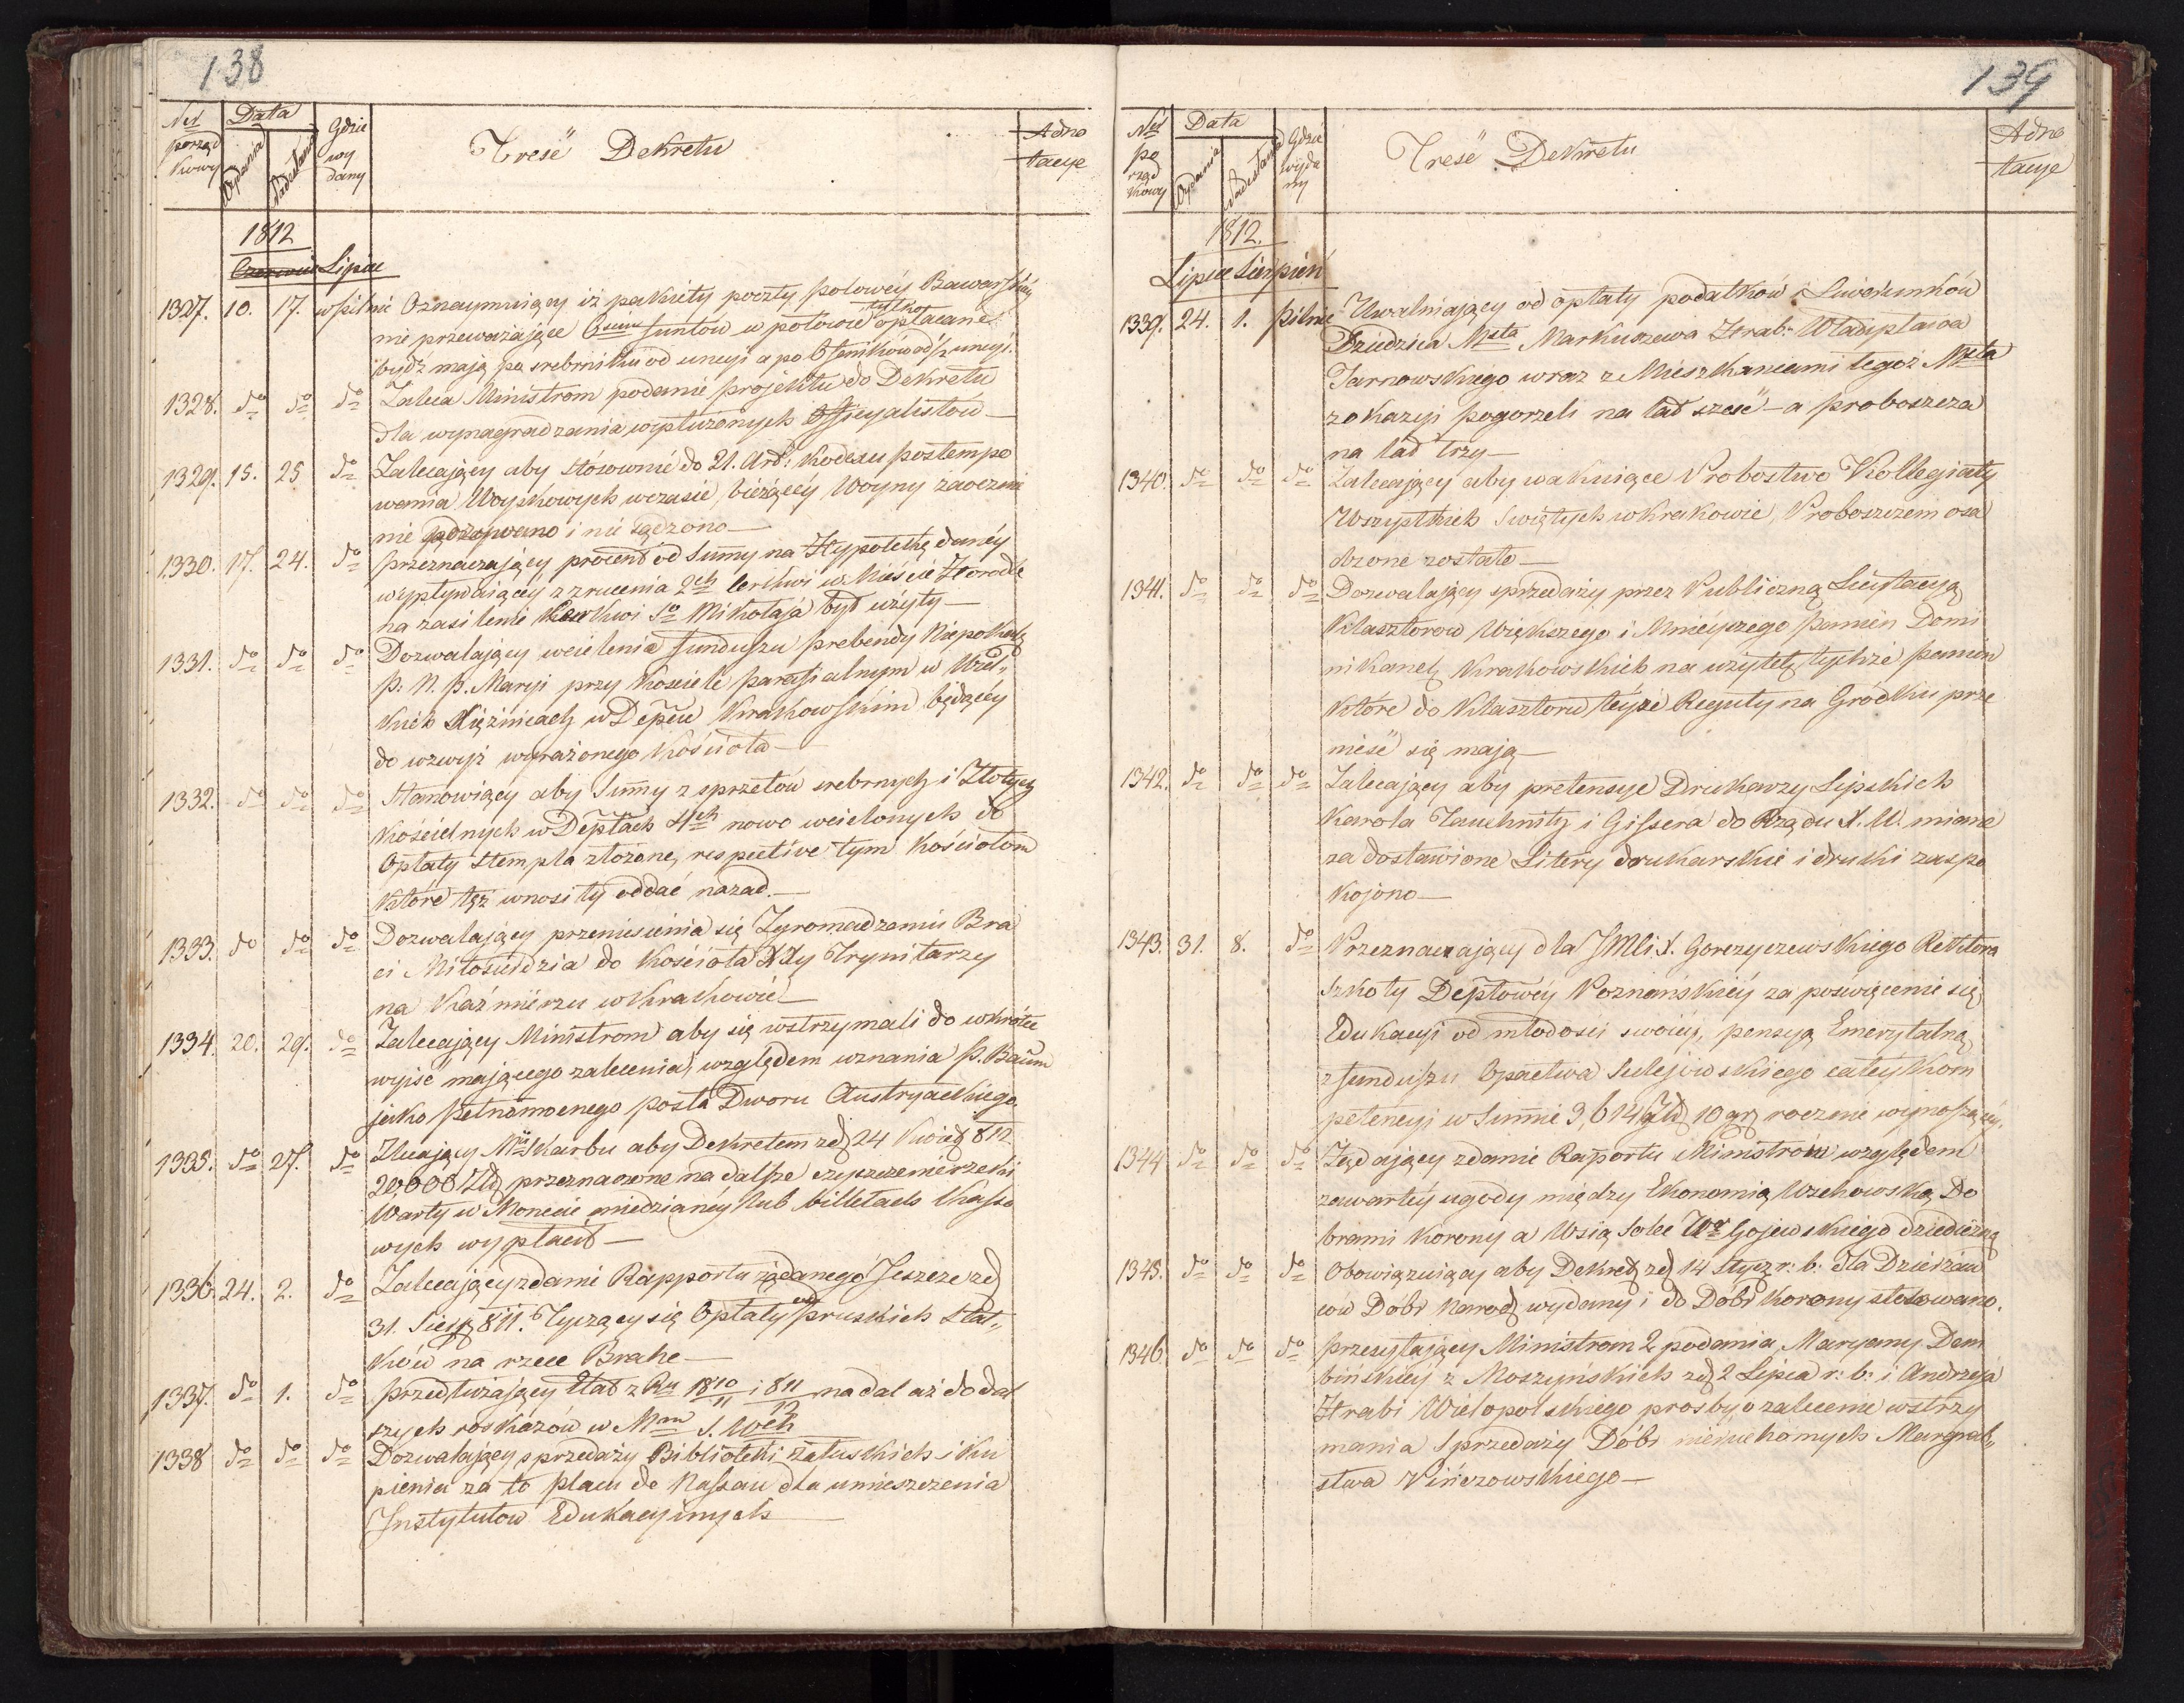 138
Ner porząd kowy
Data
Wydania
Nadesłania
Gdzie wy dany
Treść Dekretu
Adno tacye
1812
Czerwiec Lipiec
1327. 10. 17. w Pilnie Oznaymuiący iż pakiety poczty polowey Bawarskiey
nie przeważaiące 6ciu funtów w połowie tylko opłacane
bydź mają po srebrniku od uncyi a po
1328. do do do Zaleca Ministrom podanie projektu do Dekretu
dla wynagradzania wysłużonych Officyalistów
1329. 15. 25 do Zalecający aby stósownie do 21. Art: Kodexu postempo
wania Woyskowych w czasie bieżącey Woyny zaocznie
nie i nie sądzono
1330. 17. 24. do przeznaczający procent od Summy na Hypotekę daney
wypływaiącey z zrucenia 2ch Cerkwi w Mieście Horodle
na zasilenie Cerkwi So Mikołaja był użyty
1331. do do do Dozwalający wcielenia funduszu prebendy Niepokal
P. N. P. Maryi przy Kościele parafialnym w Wiel„
kich Xiężnicach w Depcie Krakowskim będącey
do wzwyż wyrażonego Kościoła
1332. do do do Stanowiący aby Summy z sprzetów srebrnych i Złotych
Kościelnych w Deptach 4ch nowo wcielonych do
Opłaty stempla złożone, respective tym Kościołom
które też wnosiły oddać nazad.
1333. do do do Dozwalający przeniesienia się Zgromadzeniu Bra
ci Miłosierdzia do Kościoła XXy Trynitarzy
na Kaźmierzu w Krakowie
1334. 20. 29. do Zalecający Ministrom aby się wstrzymali do wkrótce
wyiść mającego zalecenia, względem uznania P. Baum
jako pełnomocnego posła Dworu Austryackiego
1335. do 27. do Zlecający Mrwi Skarbu aby Dekretem zd 24 Kwiet 812
20,000 Złp przeznaczone na dalsze czyszczenie rzeki
Warty w Monecie miedzianey lub billetach Kasso
wych wypłacił
1336. 24. 2. do Zalecający zdanie Rapportu żądanego Jeszcze zd
31. Sierp 811. Tyczący się Opłaty od pruskich Stat„
ków na rzece Brahe
1337. do 1. do przedłużający Etat z Ru 1810/11 i 811/12 na dal aż do dal
szych roskazów w Mrn S. Weh
1338 do do do Dozwalający sprzedaży Biblioteki Załuskich i Ku
pienia za to placu de Nassau dla umieszczenia
Instytutow Edukacyinych
139
Ner po rząd kowy
Data
Wydania
Nadesłania
Gdzie wyda ny
Treść Dekretu
Adno tacye
1812.
Lipiec Sierpień
1339. 24. 1. Pilnie Uwalniający od opłaty podatków i Liwerunków
Dziedzica Msta Markuszewa Hrab: Władysława
Tarnowskiego wraz z Mieszkańcami tegoż Msta
z okazyi pogorzeli na lat sześć a proboszcza
na lat trzy
1340. do do do Zalecający aby wakuiące Probostwo Kollegiaty
Wszystkich Swiętych w Krakowie, Proboszczem osa
dzone zostało
1341. do do do Dozwalający sprzedaży przez Publiczną Licytacyą
Klasztorow Większego i Mnieyszego panien Domi
nikanek Krakowskich na użytek tychże panien
które do Klasztoru teyże Reguły na Gródku prze
nieść się mają
1342. do do do Zalecający aby pretensye Drukarzy Lipskich
Karola Tauchnitz i Gissera do Rządu X. W. miane
za dostawione Litery drukarskie i druki zaspo
kojono
1343. 31. 8. do Przeznaczający dla JMci X. Gorczyczewskiego Rektora
Szkoły Deptowey Poznańskiey za poswięcenie się
Edukacyi od młodości swoiey, pensyą Emerytalną
z funduszu Opactwa Sulejowskiego całey Kom
petencyi w Summie 3,614 Złp 10 gr rocznie wynoszącey.
1344 do do do Żądający zdanie Raportu Ministrów względem
zawartey ugody między Ekonomią Wschowską Do
brami Korony a Wsią Solec Wo Gojewskiego dziedziczną
1345. do do do Obowięzuiący aby Dekret zd 14 Stycz. r: b: dla Dzierżaw
ców Dóbr Narod wydany i do Dóbr Korony stosowano.
1346. do do do przesyłający Ministrom 2 podania Maryanny Dem
bińskiey z Moszyńskich zd 2 Lipca r: b: i Andrzeja
Hrabi Wielopolskiego prosby o zalecenie wstrzy
mania Sprzedaży Dóbr nieruchomych Margrab„
stwa Pińczowskiego